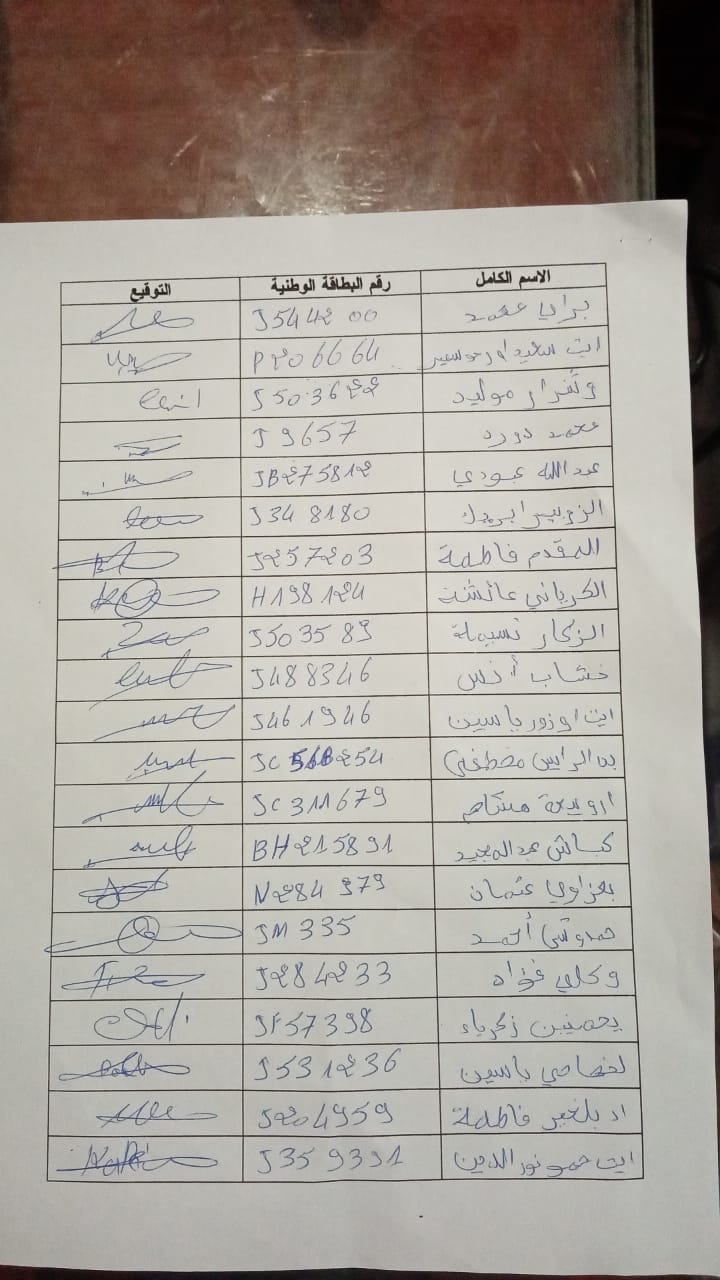 الاسم الكامل رقم البطاقة الوطنية التوقيع
براي محمد J544200
ايت سعيد P206664
موليد J503622
محمد دورد J9657
عبد الله عبودي JB275812
الزوبير ابريك J348180
المقدم فاطمة J257203
الكرياني عائشة H198124
الزكار نسيمة J503589
خشاب أنس J488346
ايت اوزور ياسين J461946
بن الرايس مصطفى JC568254
ارويعة هشام JC311679
كباش عبد المجيد BH215891
بعزاوي عثمان N284379
حمدوشي أحمد JM335
وكلي فؤاد J284233
يحنين زكرياء JF57398
لخصاصي ياسين J531236
اد بلخير فاطمة J204959
ايت حمو نور الدين J359391